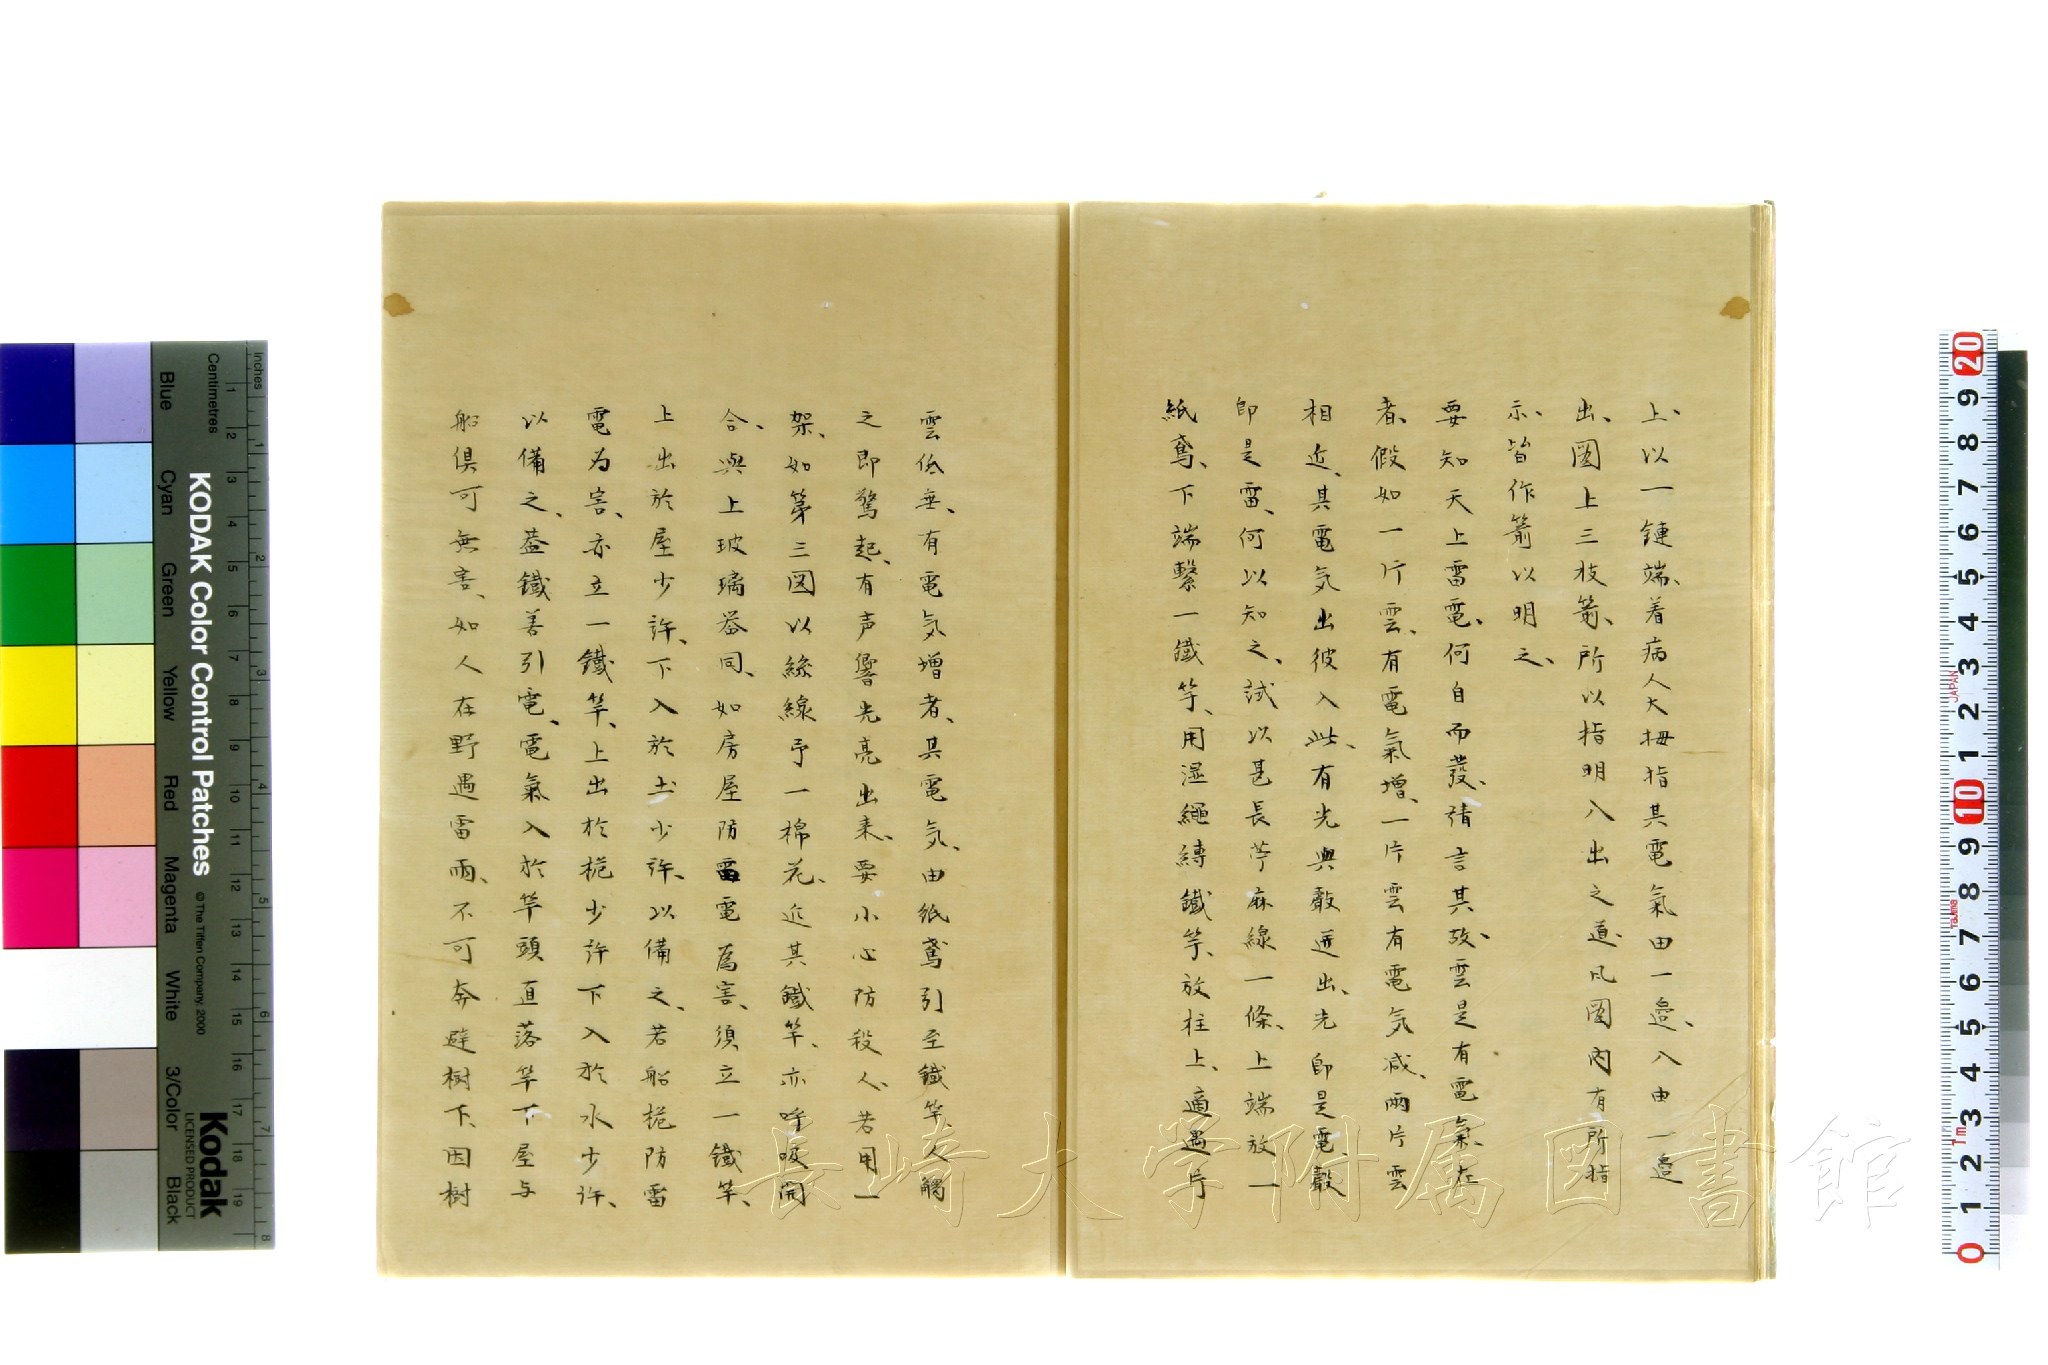 上、以一鏈端、着病人大拇指其電氣由一邉、入由一邉
出、圖上三枝箭、所以指明入出之道、凡圖内有所指
示、皆作箭以明之、
要知天上雷電、何自而發、請言其故、雲是有電氣在
者、假如一片雲、有電氣増、一片雲有電気减、兩片雲
相近、其電気出彼入此、有光與聲迸出、光即是電、聲
即是雷、何以知之、試以甚長苧麻線一條、上端放一
紙鳶、下端繫一鐵竿、用湿繩縛鐵竿、放柱上、適遇片
雲低垂、有電気增者、其電気、由紙鳶引至鐵竿、人觸
之即驚起、有声響光亮出来、要小心防殺人、若用一
架、如第三図以絲線予一棉花、近其鐵竿、亦呼吸開
合、與上玻璃器同、如房屋防雷電為害、須立一鐵竿、
上出於屋少許、下入於土少許、以備之、若船桅防雷
電为害、亦立一鐵竿、上出於桅少許下入於水少許、
以備之、蓋鐵善引電、電氣入於竿頭直落竿下屋与
船俱可無害、如人在野遇雷雨、不可奔避樹下、因樹
長崎大学附属図書館
KODAK Color Control Patches
© The Tiffen Company, 2000
Kodak
LICENSED PRODUCT
Centimetres
Inches
Blue
Cyan
Green
Yellow
Red
Magenta
White
3/Color
Black